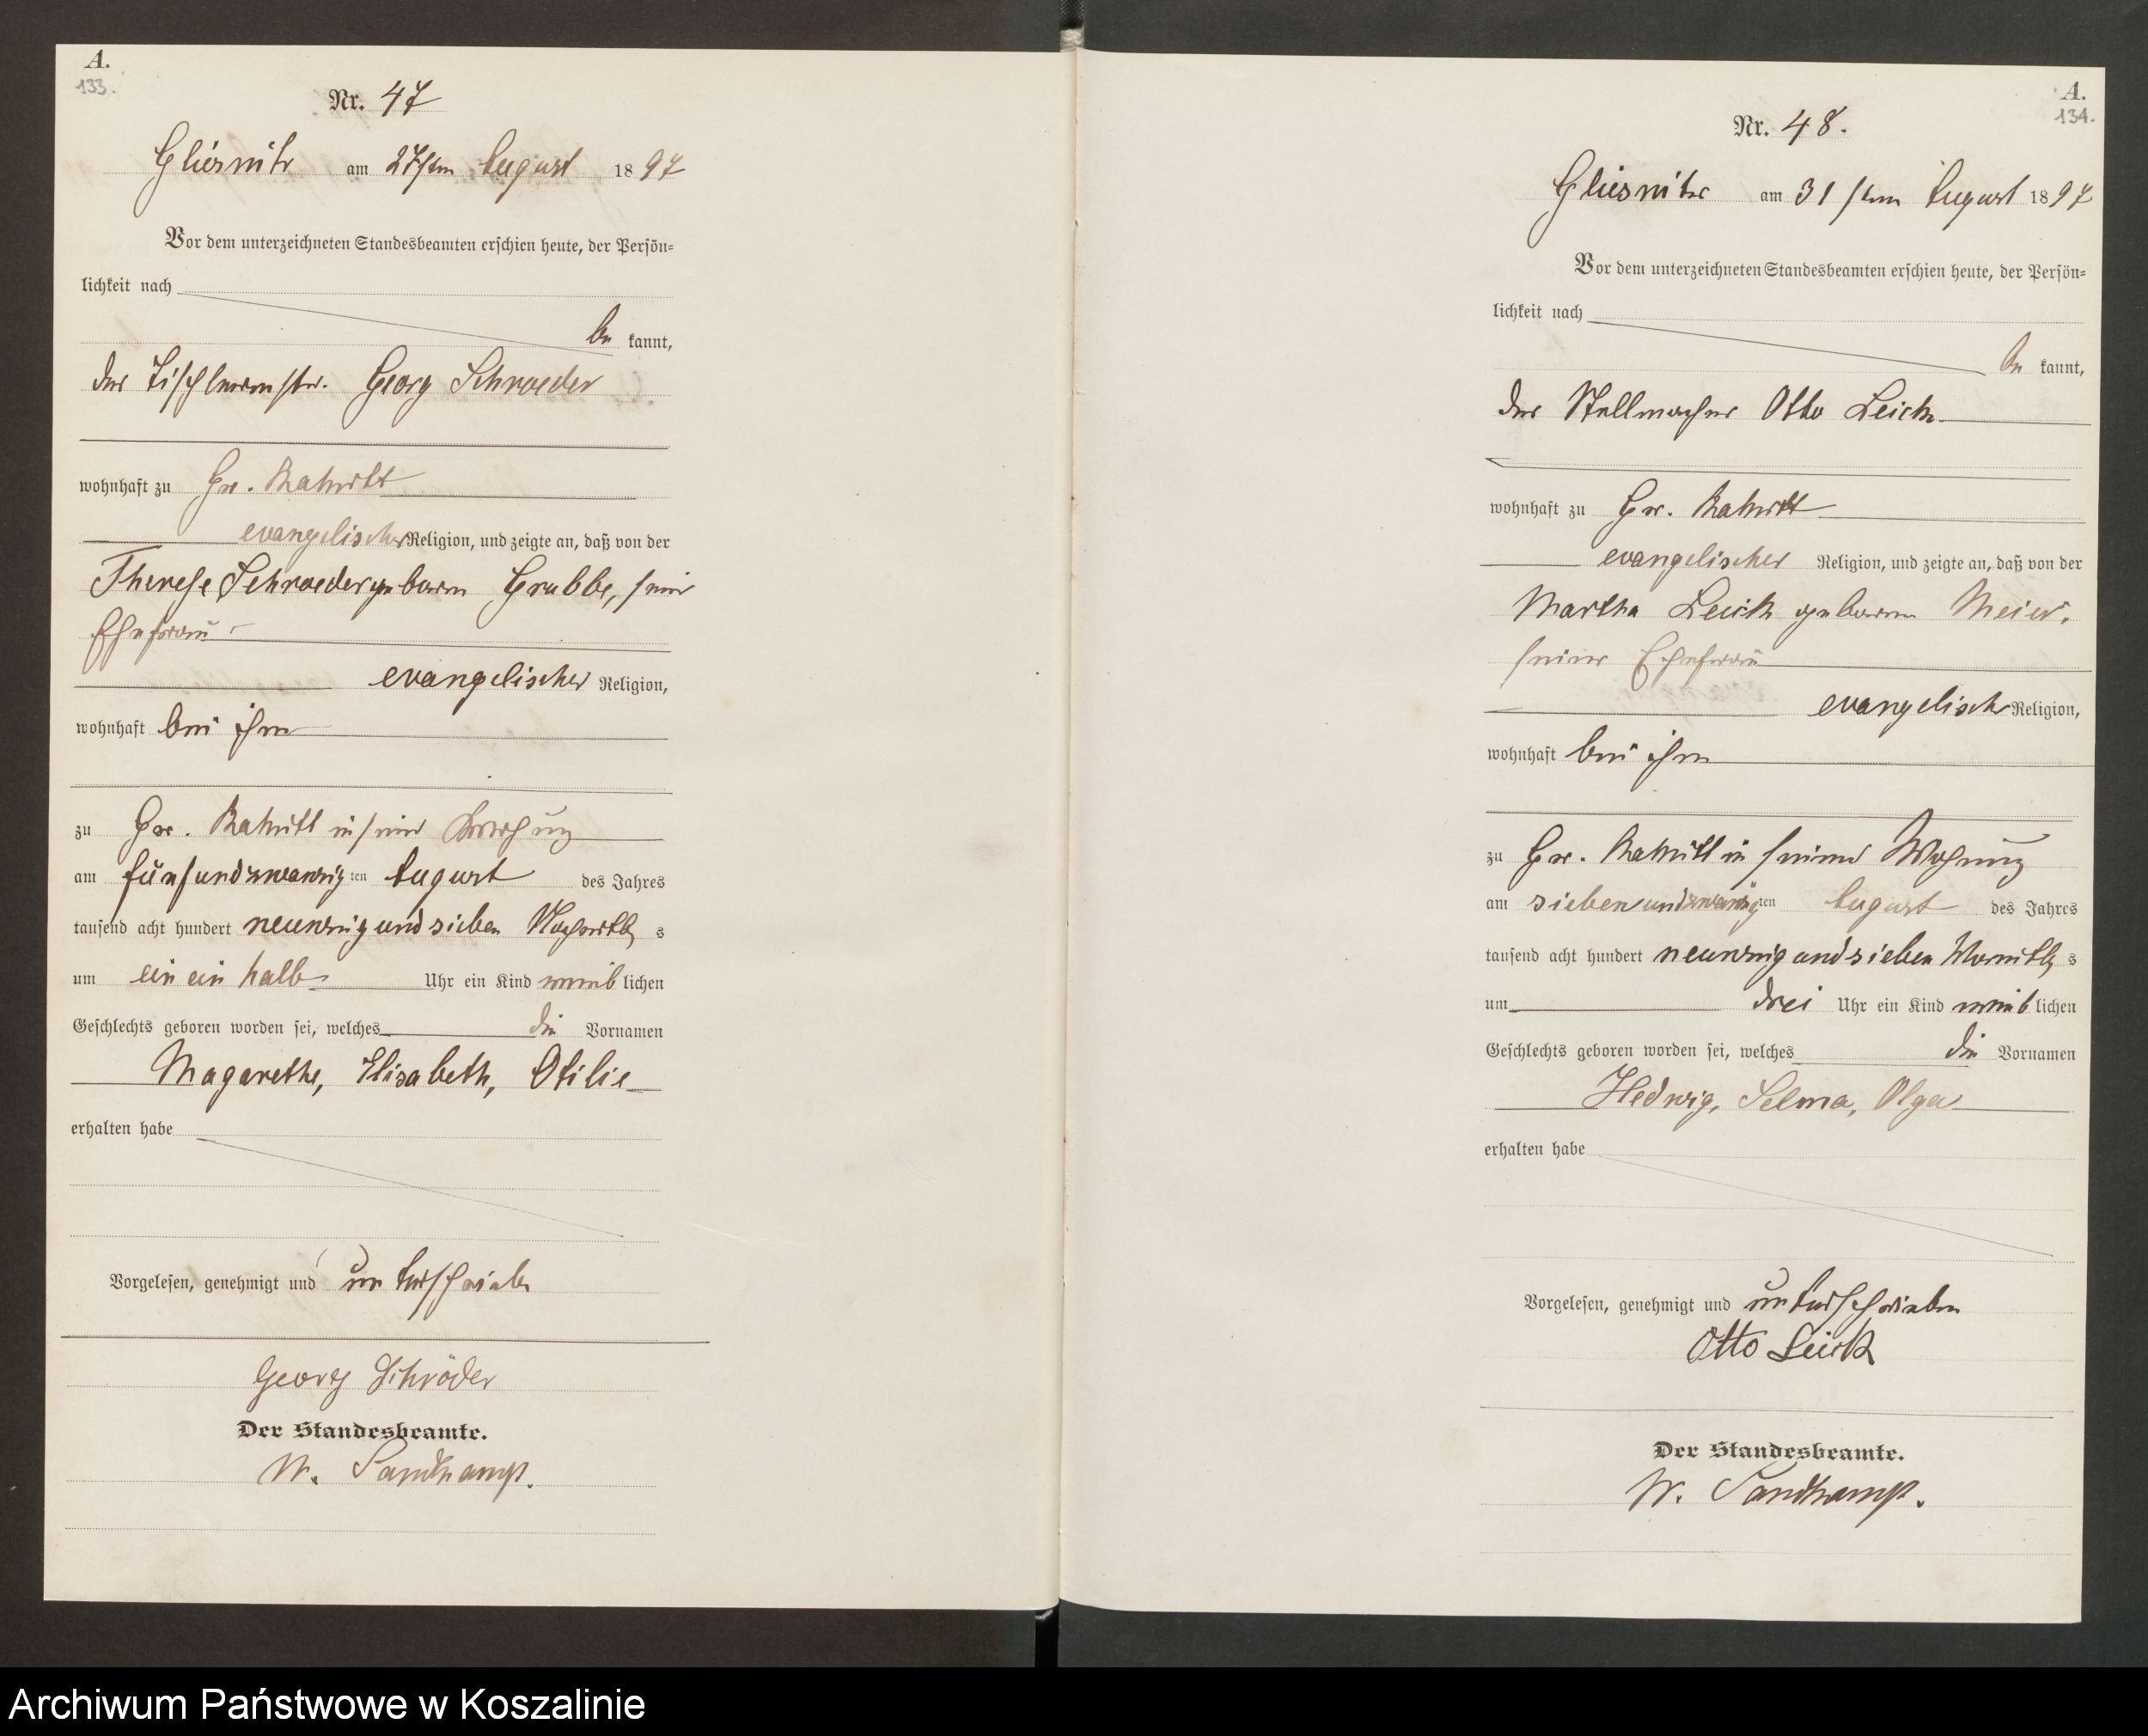 A.
133.
Nr. 47
Gliesnitz am 27ten August 1897
Vor dem unterzeichneten Standesbeamten erschien heute, der Persön=
lichkeit nach
be kannt,
der Tischlermstr. Georg Schroeder
wohnhaft zu Gr. Rakitt
evangelischer Religion, und zeigte an, daß von der
Therese Schroeder geboren Grubbe, seiner
Ehefrau
evangelischer Religion,
wohnhaft bei ihm
zu Gr. Rakitt in seiner Wohnung
am fünfundzwanzig ten August des Jahres
tausend acht hundert neunzig und sieben Nachmittag s
um ein ein halb Uhr ein Kind weib lichen
Geschlechts geboren worden sei, welches die Vornamen
Magarethe, Elisabeth, Otilie
erhalten habe
Vorgelesen, genehmigt und unterschrieben
Georg Schröder
Der Standesbeamte.
W. Sandkamp.
A.
134.
Nr. 48.
Gliesnitz am 31sten August 1897
Vor dem unterzeichneten Standesbeamten erschien heute, der Persön=
lichkeit nach
be kannt,
der Stellmacher Otto Leick
wohnhaft zu Gr. Rakitt
evangelischer Religion, und zeigte an, daß von der
Martha Leick geboren Meier,
seiner Ehefrau
evangelisch Religion,
wohnhaft bei ihm
zu Gr. Rakitt in seiner Wohnung
am siebenundzwanzig ten August des Jahres
tausend acht hundert neunzig und sieben Vormittag s
um drei Uhr ein Kind weib lichen
Geschlechts geboren worden sei, welches die Vornamen
Hedwig, Selma, Olga
erhalten habe
Vorgelesen, genehmigt und unterschrieben
Otto Leick
Der Standesbeamte.
W. Sandkamp.
Archiwum Państwowe w Koszalinie